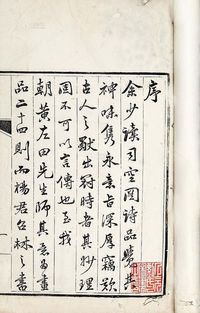 序
余少讀司空圖詩品覺其
神味雋永意旨深厚竊歎
古人之獻出冠時者其妙理
固不可以言傳也至我
朝黃左田先生師其意為畫
品二十四則而楊君召林之書